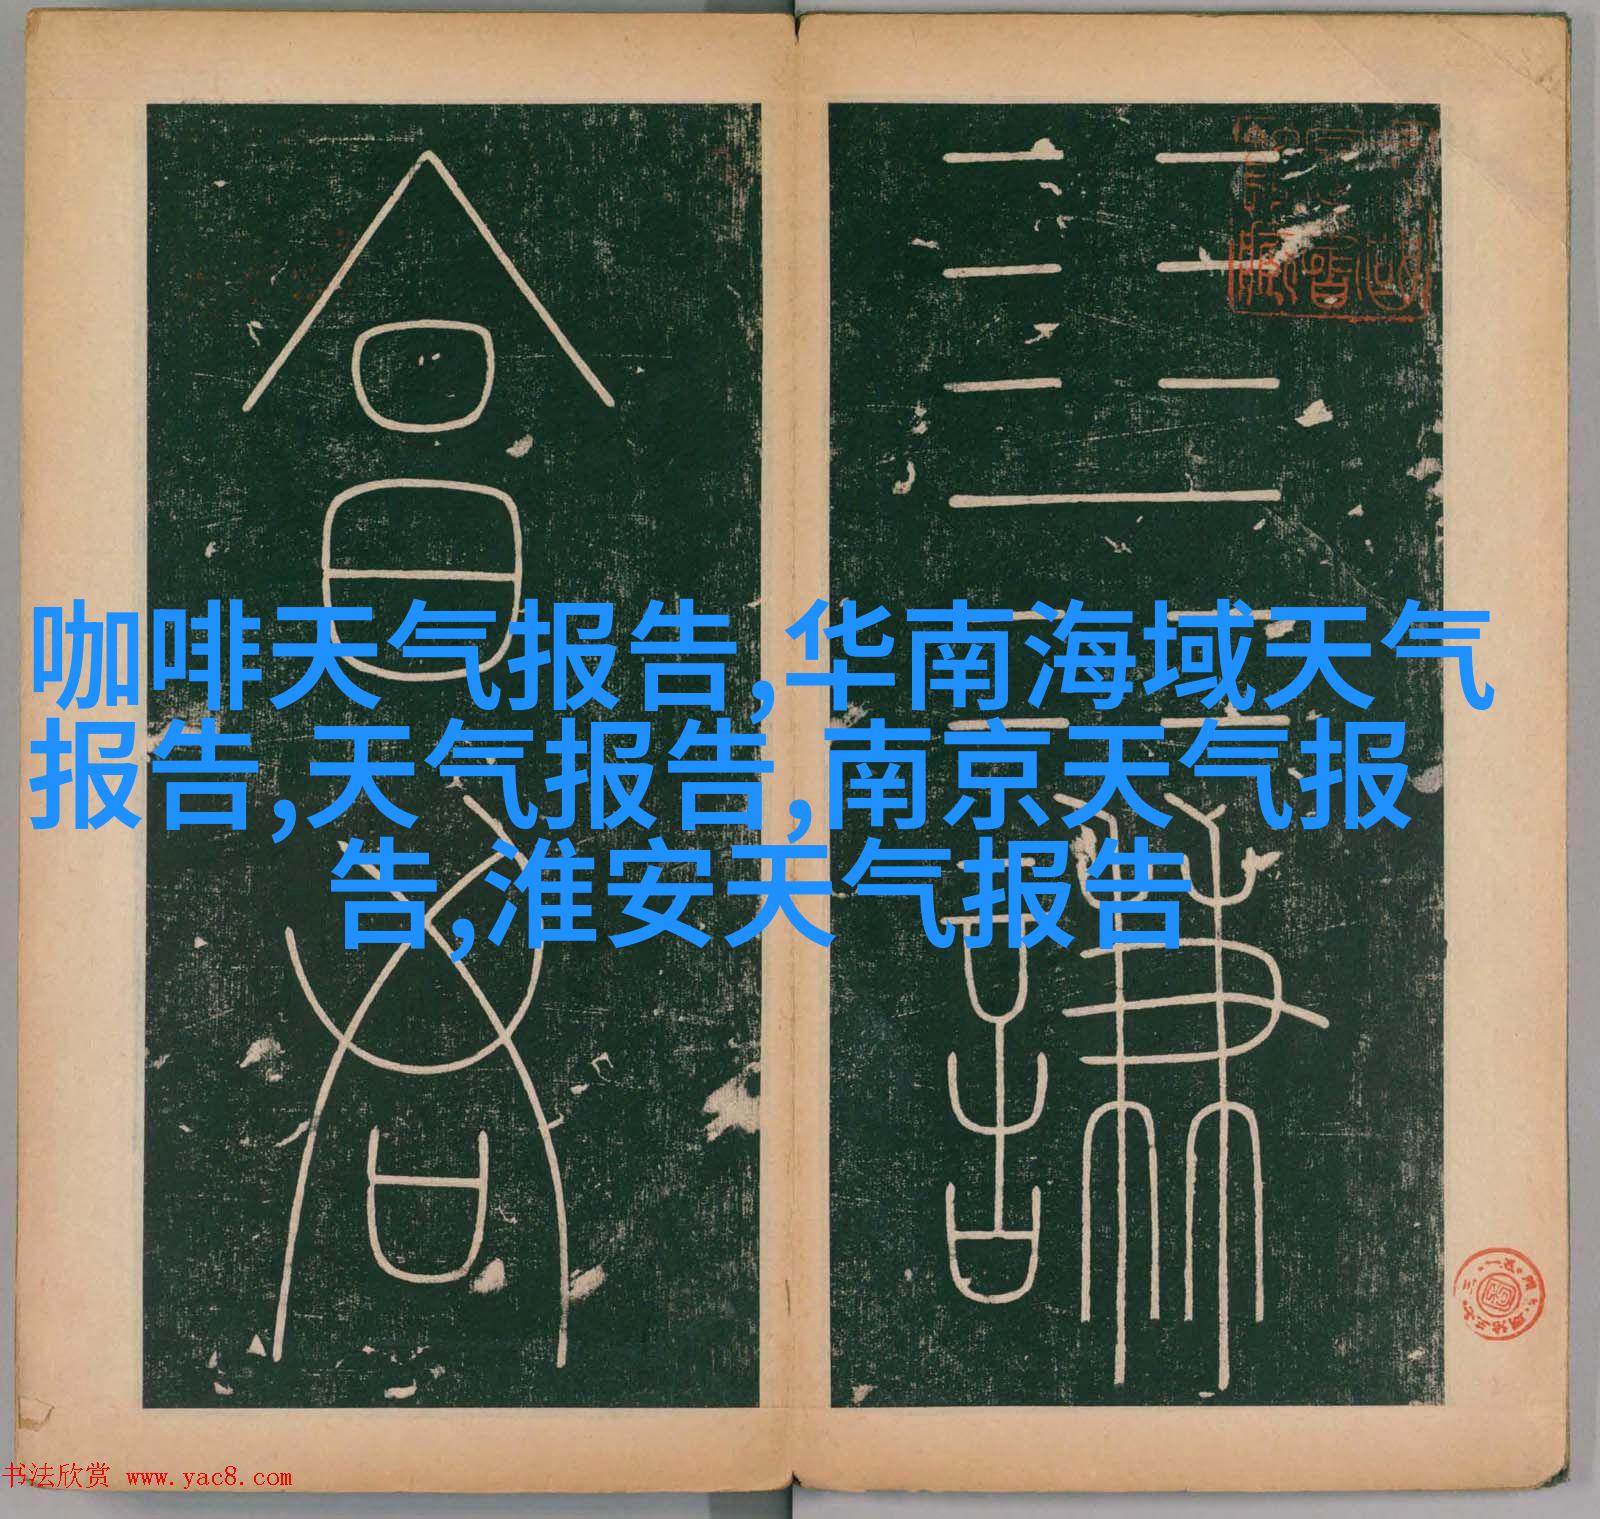 咖啡天气报告,华南海域天气
报告,天气报告,南京天气报
告,淮安天气报告
謙
亯君
书法欣赏 www.yac8.com